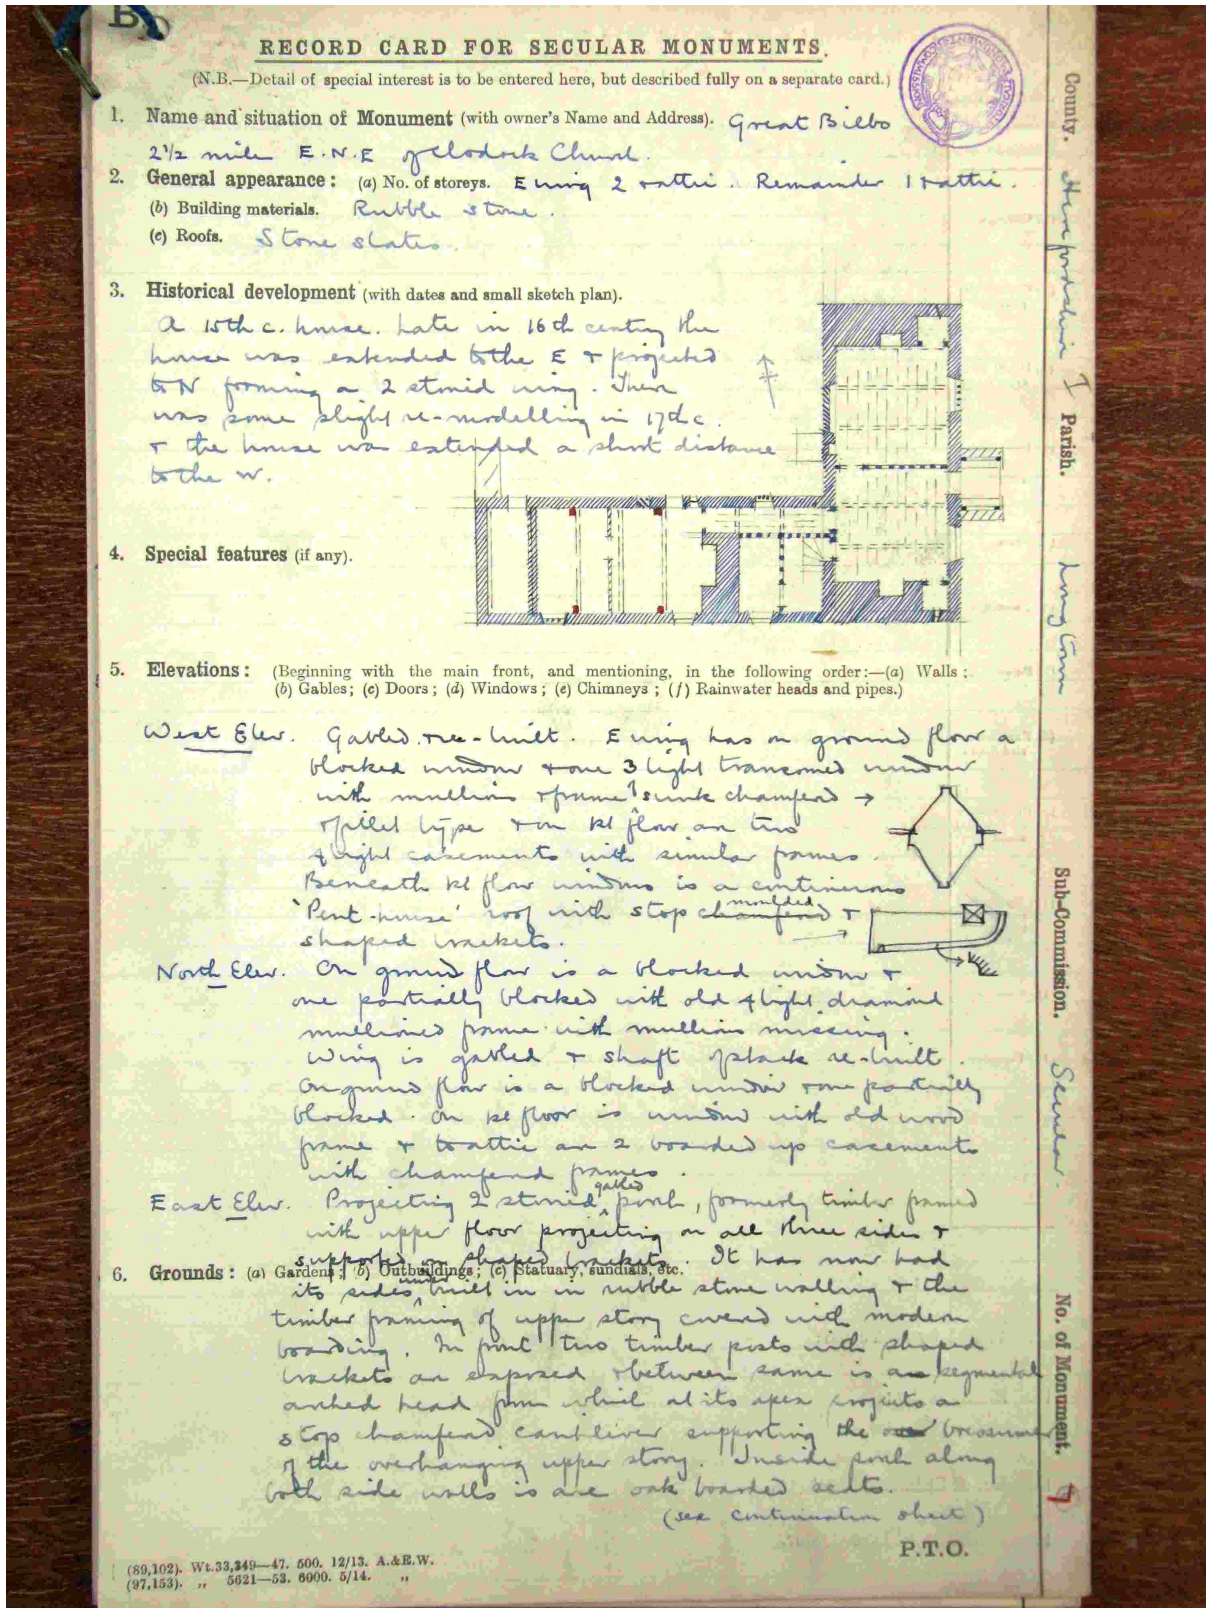 RECORD CARD FOR SECULAR MONUMENTS.
(N.B.—Detail of special interest is to be entered here, but described fully on a separate card.)
1. Name and situation of Monument (with owner's Name and Address). Great Bilbo
2½ mile E.N.E of Clodock Church.
2. General appearance: (a) No. of storeys. E wing 2 + attic. Remainder 1 + attic.
(b) Building materials. Rubble stone.
(c) Roofs. Stone slates.
3. Historical development (with dates and small sketch plan).
A 15th c. house. Late in 16th century the
house was extended to the E & projected
to N forming a 2 storied wing. There
was some slight re-modelling in 17th c.
& the house was extended a short distance
to the W.
4. Special features (if any).
5. Elevations: (Beginning with the main front, and mentioning, in the following order:—(a) Walls;
(b) Gables; (c) Doors; (d) Windows; (e) Chimneys; (f) Rainwater heads and pipes.)
West Elev. Gabled & re-built. E wing has on ground floor a
blocked window & one 3 light transomed window
with mullions & frame sunk chamfered →
& fillet type & on 1st floor are two
4 light casements with similar frames.
Beneath 1st floor windows is a continuous
'Pent-house' roof with stop chamfered moulded &
shaped brackets.
North Elev. On ground floor is a blocked window &
one partially blocked with old 4 light diamond
mullioned frame with mullions missing.
Wing is gabled & shaft of stack re-built.
On ground floor is a blocked window & one partially
blocked. On 1st floor is window with old wood
frame & to attic are 2 boarded up casements
with chamfered frames.
East Elev. Projecting 2 storied gabled porch, formerly timber framed
with upper floor projecting on all three sides &
supported on shaped brackets. It has now had
6. Grounds: (a) Gardens; (b) Outbuildings; (c) Statuary, sundials, etc.
its sides under built in in rubble stone walling & the
timber framing of upper story covered with modern
boarding. In front two timber posts with shaped
brackets are exposed & between same is a segmental
arched head from which at its apex projects a
stop chamfered cantilever supporting the over bressumer
of the overhanging upper story. Inside porch along
both side walls is are oak boarded seats.
(see continuation sheet)
P.T.O.
(89,102). Wt.33,349—47. 500. 12/13. A.&E.W.
(97,153). „ 5621—53. 6000. 5/14. „
County. Herefordshire I
Parish. Longtown
Sub-Commission. Secular.
No. of Monument. 7